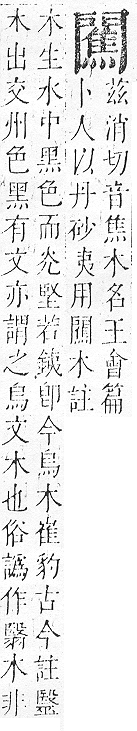 𨶲
茲消切音焦木名王會篇
卜人以丹砂夷用𨶲木註
木生水中黑色而光堅若鐵卽今烏木崔豹古今註
木出交州色黑有文亦謂之烏文木也俗譌作翳木非